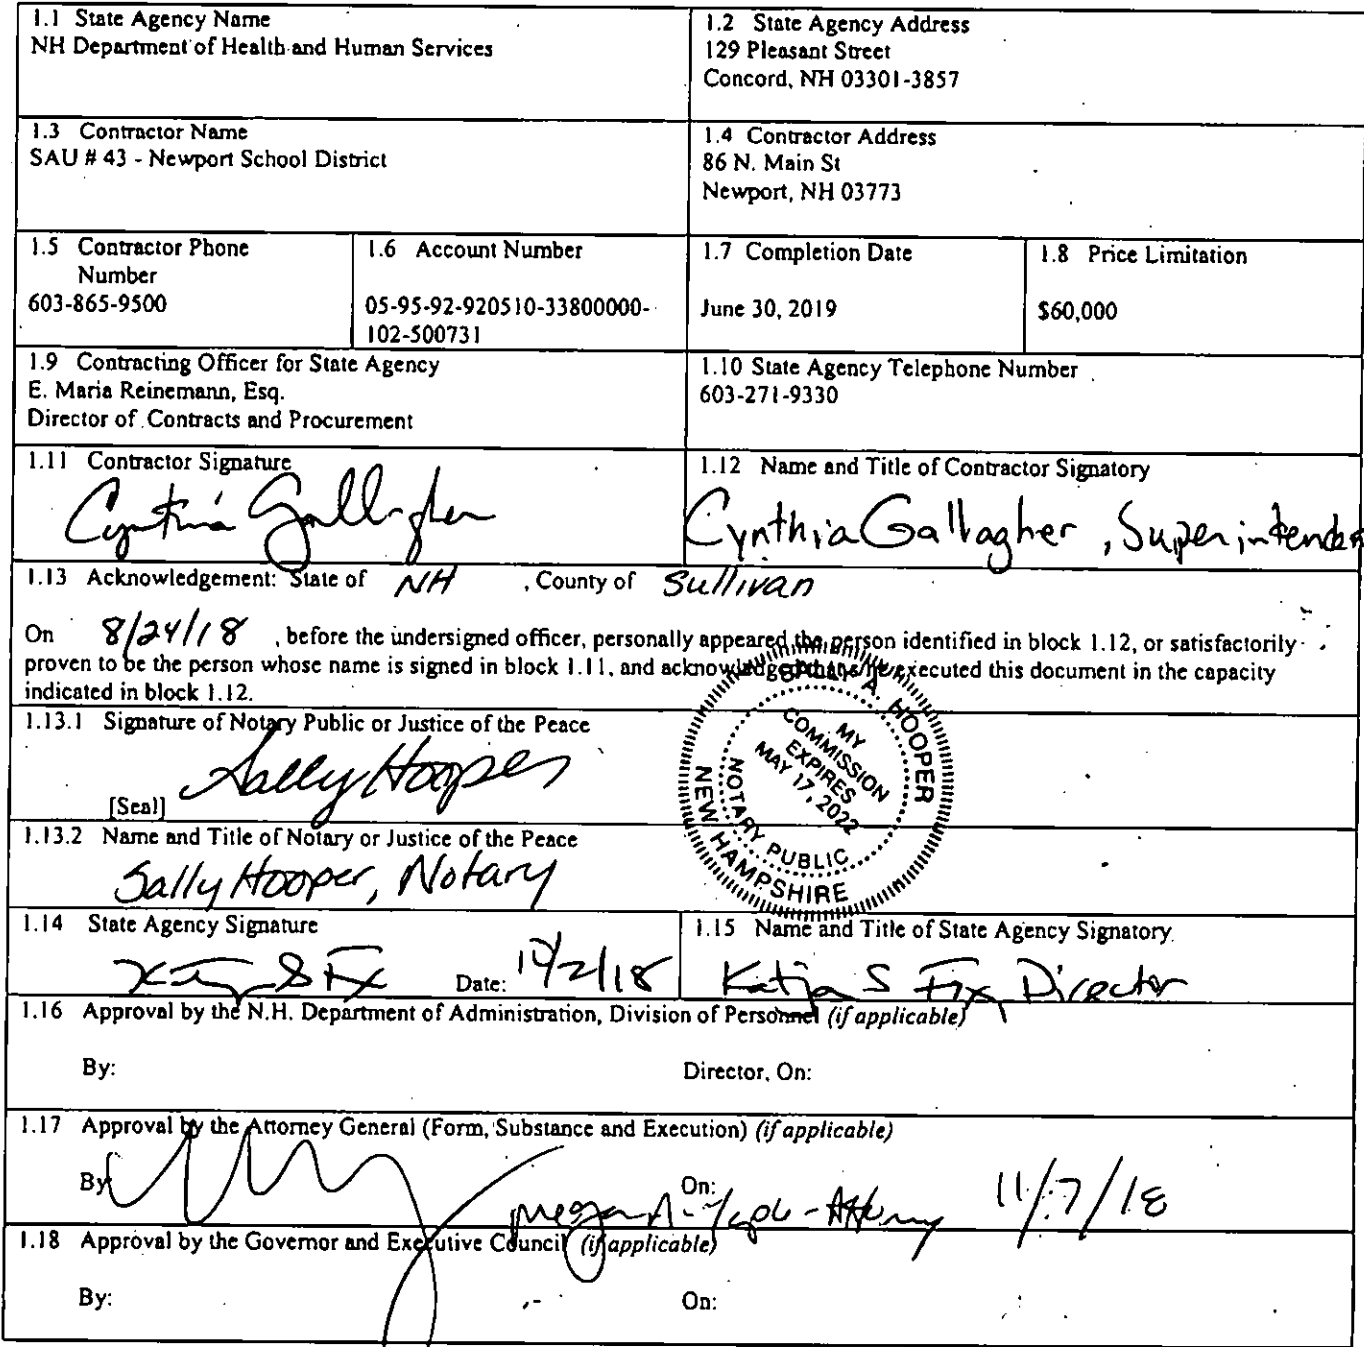 1.1 State Agency Name
NH Department of Health and Human Services
1.2 State Agency Address
129 Pleasant Street
Concord, NH 03301-3857
1.3 Contractor Name
SAU # 43 - Newport School District
1.4 Contractor Address
86 N. Main St
Newport, NH 03773
1.5 Contractor Phone
Number
603-865-9500
1.6 Account Number
05-95-92-920510-33800000-
102-500731
1.7 Completion Date
June 30, 2019
1.8 Price Limitation
$60,000
1.9 Contracting Officer for State Agency
E. Maria Reinemann, Esq.
Director of Contracts and Procurement
1.10 State Agency Telephone Number
603-271-9330
1.11 Contractor Signature
Cynthia Gallagher
1.12 Name and Title of Contractor Signatory
Cynthia Gallagher, Superintendent
1.13 Acknowledgement: State of NH, County of Sullivan
On 8/24/18, before the undersigned officer, personally appeared the person identified in block 1.12, or satisfactorily
proven to be the person whose name is signed in block 1.11, and acknowledged that s/he executed this document in the capacity
indicated in block 1.12.
1.13.1 Signature of Notary Public or Justice of the Peace
Sally Hooper
[Seal]
SALLY A. HOOPER
MY
COMMISSION
EXPIRES
MAY 17, 2022
NOTARY PUBLIC
NEW HAMPSHIRE
1.13.2 Name and Title of Notary or Justice of the Peace
Sally Hooper, Notary
1.14 State Agency Signature
Date: 10/2/18
1.15 Name and Title of State Agency Signatory
Katja S Fox, Director
1.16 Approval by the N.H. Department of Administration, Division of Personnel (if applicable)
By: Director, On:
1.17 Approval by the Attorney General (Form, Substance and Execution) (if applicable)
By: On:
Megan A. - Attorney 11/7/18
1.18 Approval by the Governor and Executive Council (if applicable)
By: On: